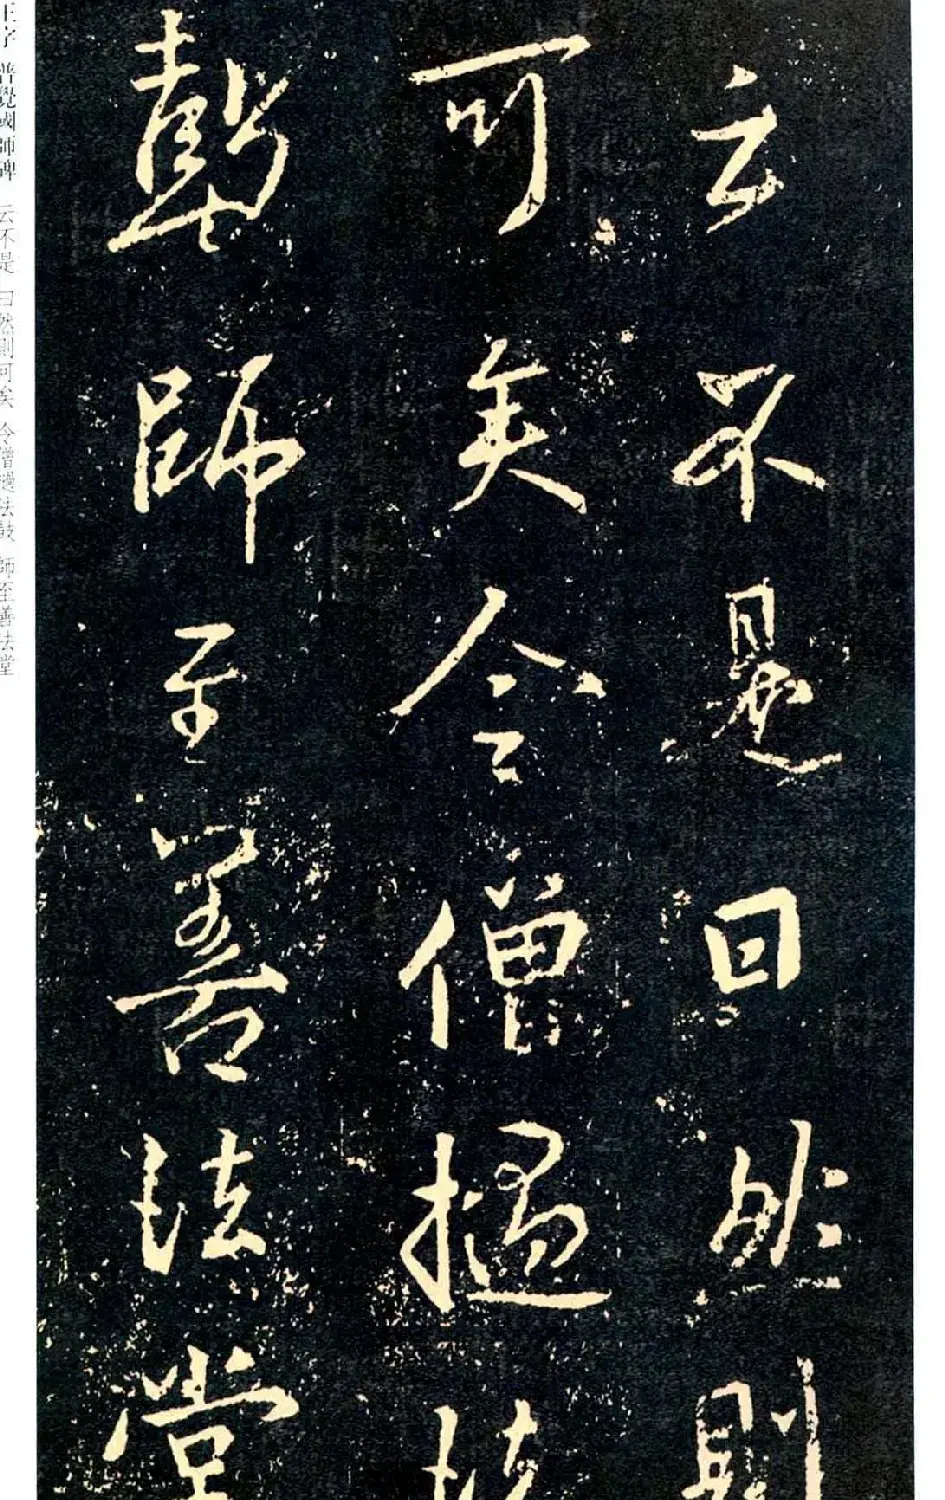 云不是曰然則
可矣令僧撾法
鼓師至善法堂
王字 普覺國師碑 云不是 曰然則可矣 令僧撾法鼓 師至善法堂